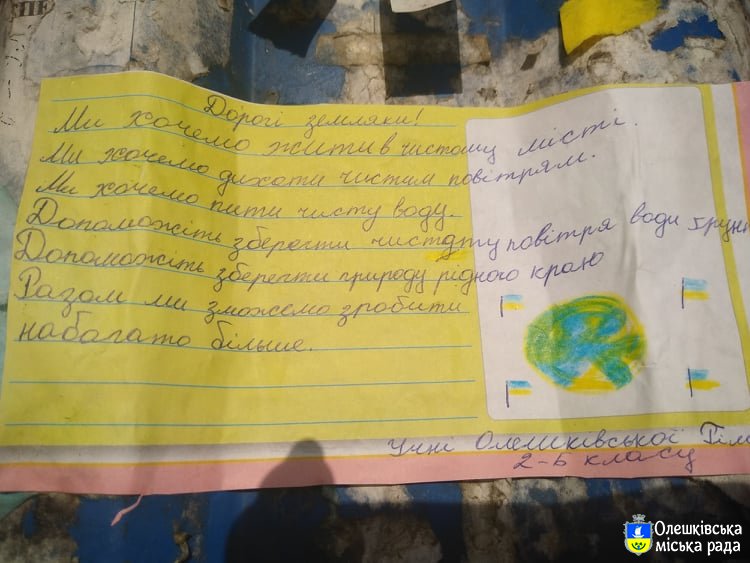 Дорогі земляки!
Ми хочемо жити в чистому місті.
Ми хочемо дихати чистим повітрям.
Ми хочемо пити чисту воду.
Допоможіть зберегти чистдту повітря води
Допоможіть зберегти природу рідного краю
Разом ми зможемо зробити
набагато більше.
Учні Олешківської
2-Б класу
Олешківська
міська рада